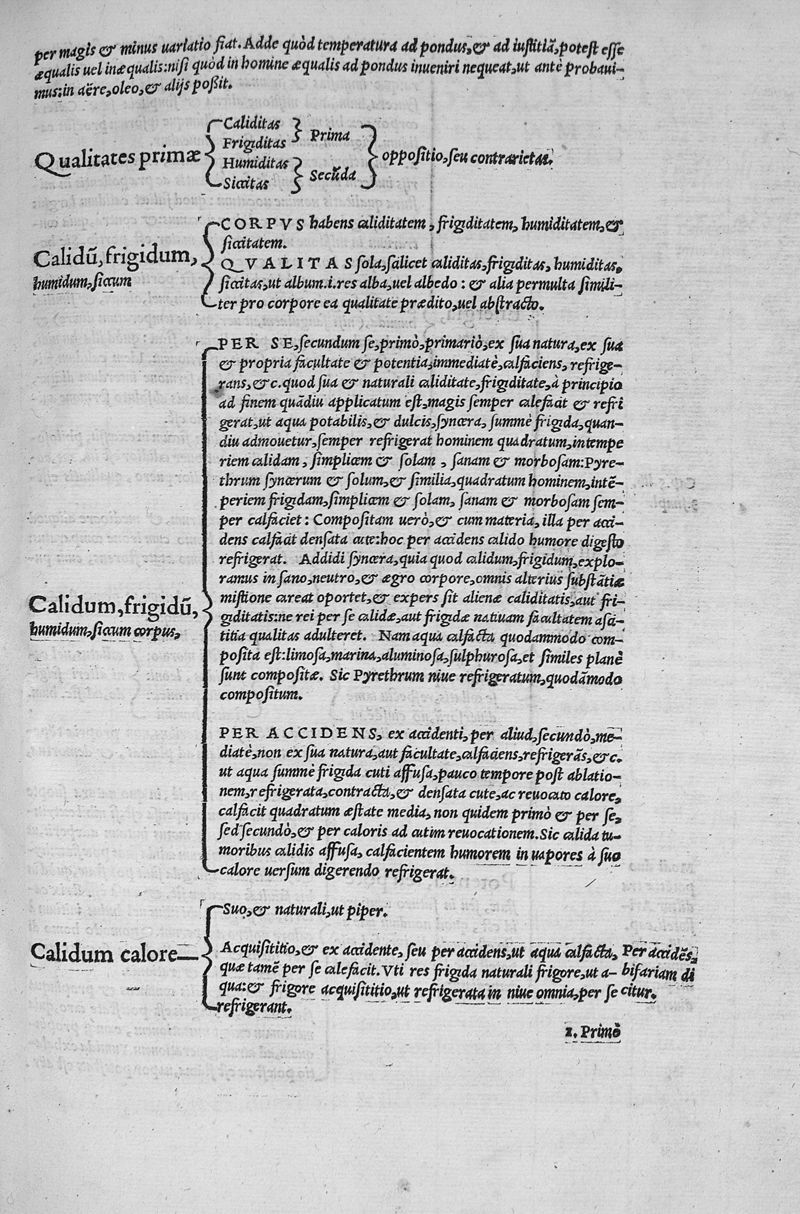 per magis & minus uariatio fiat. Adde quòd temperatura ad pondus,& ad iustitiā,potest esse
æqualis uel inæqualis:nisi quòd in homine æqualis ad pondus inueniri nequeat,ut antè probaui-
mus:in aëre,oleo,& alijs poßit.
Qualitates primæ
Caliditas
Frigiditas
Prima
Humiditas
Siccitas
Secūda
oppositio,seu contrarietas.
Calidū,frigidum,
humidum,siccum
CORPVS habens caliditatem, frigiditatem, humiditatem,&
siccitatem.
QVALITAS sola,scilicet caliditas,frigiditas, humiditas,
siccitas,ut album.i.res alba,uel albedo: & alia permulta simili-
ter pro corpore ea qualitate prædito,uel abstracto.
Calidum,frigidū,
humidum,siccum corpus,
PER SE,secundum se,primò,primariò,ex sua natura,ex sua
& propria facultate & potentia,immediatè,calfaciens, refrige-
rans,&c.quod sua & naturali caliditate,frigiditate,à principio
ad finem quādiu applicatum est,magis semper calefacit & refri
gerat,ut aqua potabilis,& dulcis,syncera, summè frigida,quan-
diu admouetur,semper refrigerat hominem quadratum,intempe
riem calidam, simplicem & solam, sanam & morbosam:Pyre-
thrum syncerum & solum,& similia,quadratum hominem,intē-
periem frigidam,simplicem & solam, sanam & morbosam sem-
per calfaciet: Compositam uerò,& cum materia, illa per acci-
dens calfacit densata cute:hoc per accidens calido humore digesto
refrigerat. Addidi syncera,quia quod calidum,frigidum,explo-
ramus in sano,neutro,& ægro corpore,omnis alterius substātiæ
mistione careat oportet,& expers sit alienæ caliditatis,aut fri-
giditatis:ne rei per se calidæ,aut frigidæ natiuam facultatem ascī-
titia qualitas adulteret. Nam aqua calfacta quodammodo com-
posita est:limosa,marina,aluminosa,sulphurosa,et similes planè
sunt compositæ. Sic Pyrethrum niue refrigeratum,quodāmodo
compositum.
PER ACCIDENS, ex accidenti,per aliud,secundò,me-
diatè,non ex sua natura,aut facultate,calfaciens,refrigerās,&c.
ut aqua summè frigida cuti affusa,pauco tempore post ablatio-
nem,refrigerata,contracta,& densata cute,ac reuocato calore,
calfacit quadratum æstate media, non quidem primò & per se,
sed secundò,& per caloris ad cutim reuocationem.Sic calida tu-
moribus calidis affusa, calfacientem humorem in uapores à suo
calore uersum digerendo refrigerat.
Calidum calore
Suo,& naturali,ut piper.
Acquisititio,& ex accidente, seu per accidens,ut aqua calfacta,
quæ tamē per se calefacit.Vti res frigida naturali frigore,ut a-
qua:& frigore acquisititio,ut refrigerata in niue omnia,per se
refrigerant.
Per accidēs,
bifariam di
citur.
1. Primò